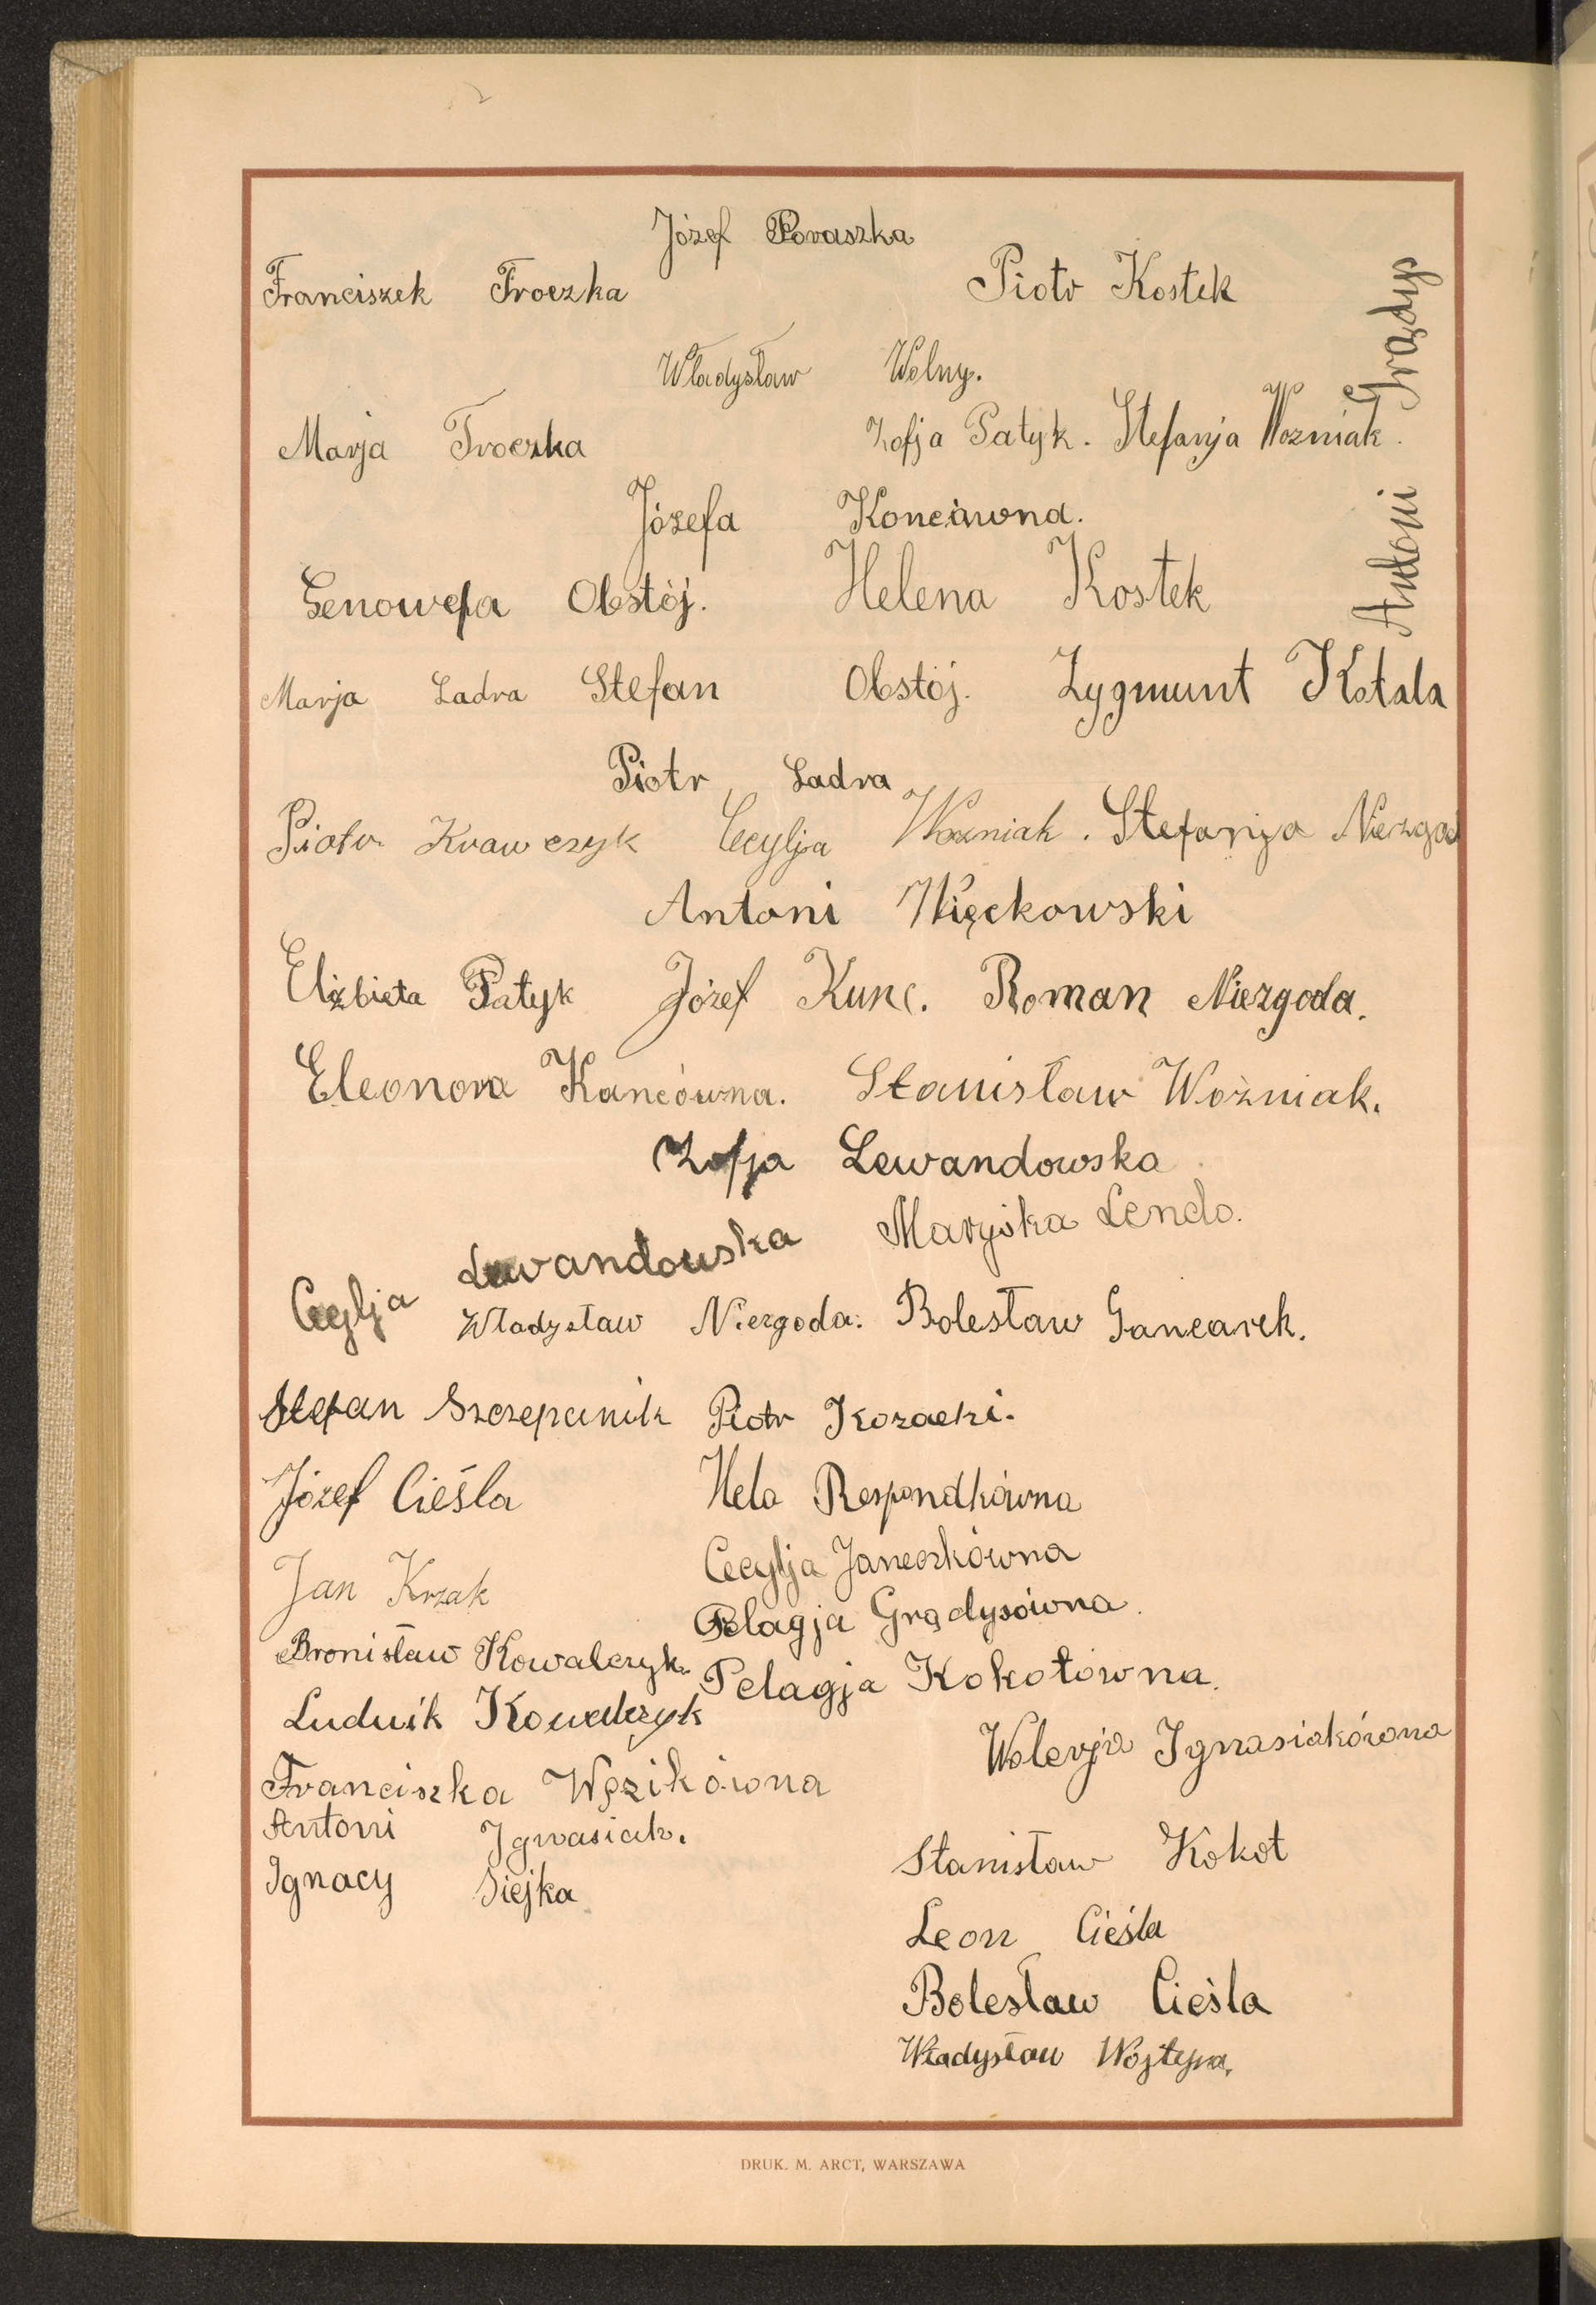 Józef Poraszka
Franciszek Troczka Piotr Kostek
Władysław Wolny.
Marja Troczka Zofja Patyk. Stefanja Woźniak.
Antoni Grądys
Józefa Koncówna.
Genowefa Obstój. Helena Kostek
Marja Ladra Stefan Obstój. Zygmunt Kotala
Piotr Ladra
Piotr Krawczyk Cecylja Woźniak. Stefanja Niezgod
Antoni Więckowski
Elżbieta Patyk Józef Kunc. Roman Niezgoda.
Eleonora Kancówna. Stanisław Woźniak.
Zofja Lewandowska
Cecylja Lewandowska Maryśka Lendo.
Władysław Niezgoda. Bolesław Gancarek.
Stefan Szczepanik Piotr Kozacki.
Józef Cieśla Hela Respondkówna
Jan Krzak Cecylja Janeczkówna
Pelagja Grądysówna.
Bronisław Kowalczyk. Pelagja Kokotówna.
Ludwik Kowalczyk
Walerja Ignasiakówna
Franciszka Węzikówna
Antoni Ignasiak.
Ignacy Siejka
Stanisław Kokot
Leon Cieśla
Bolesław Cieśla
Władysław Wojtyra.
DRUK. M. ARCT, WARSZAWA